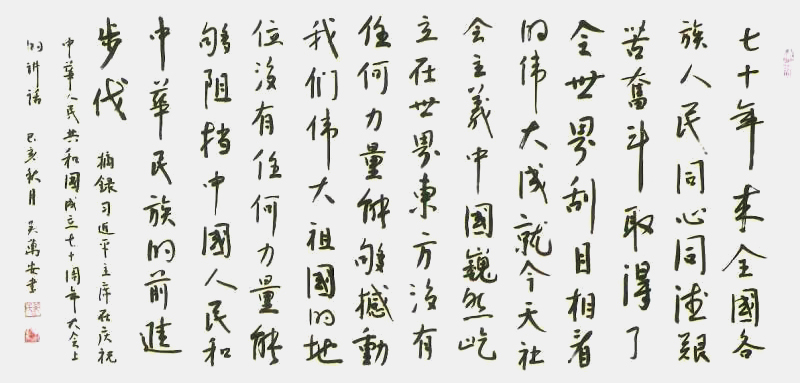 七十年来全國各
族人民同心同德艱
苦奮斗取得了
令世界刮目相看
的伟大成就今天社
会主義中國巍然屹
立在世界東方没有
任何力量能够撼動
我们伟大祖國的地
位没有任何力量能
够阻挡中國人民和
中華民族的前進
步伐 摘録习近平主席在庆祝
中華人民共和國成立七十周年大会上
的讲话 己亥秋月 吴萬安書